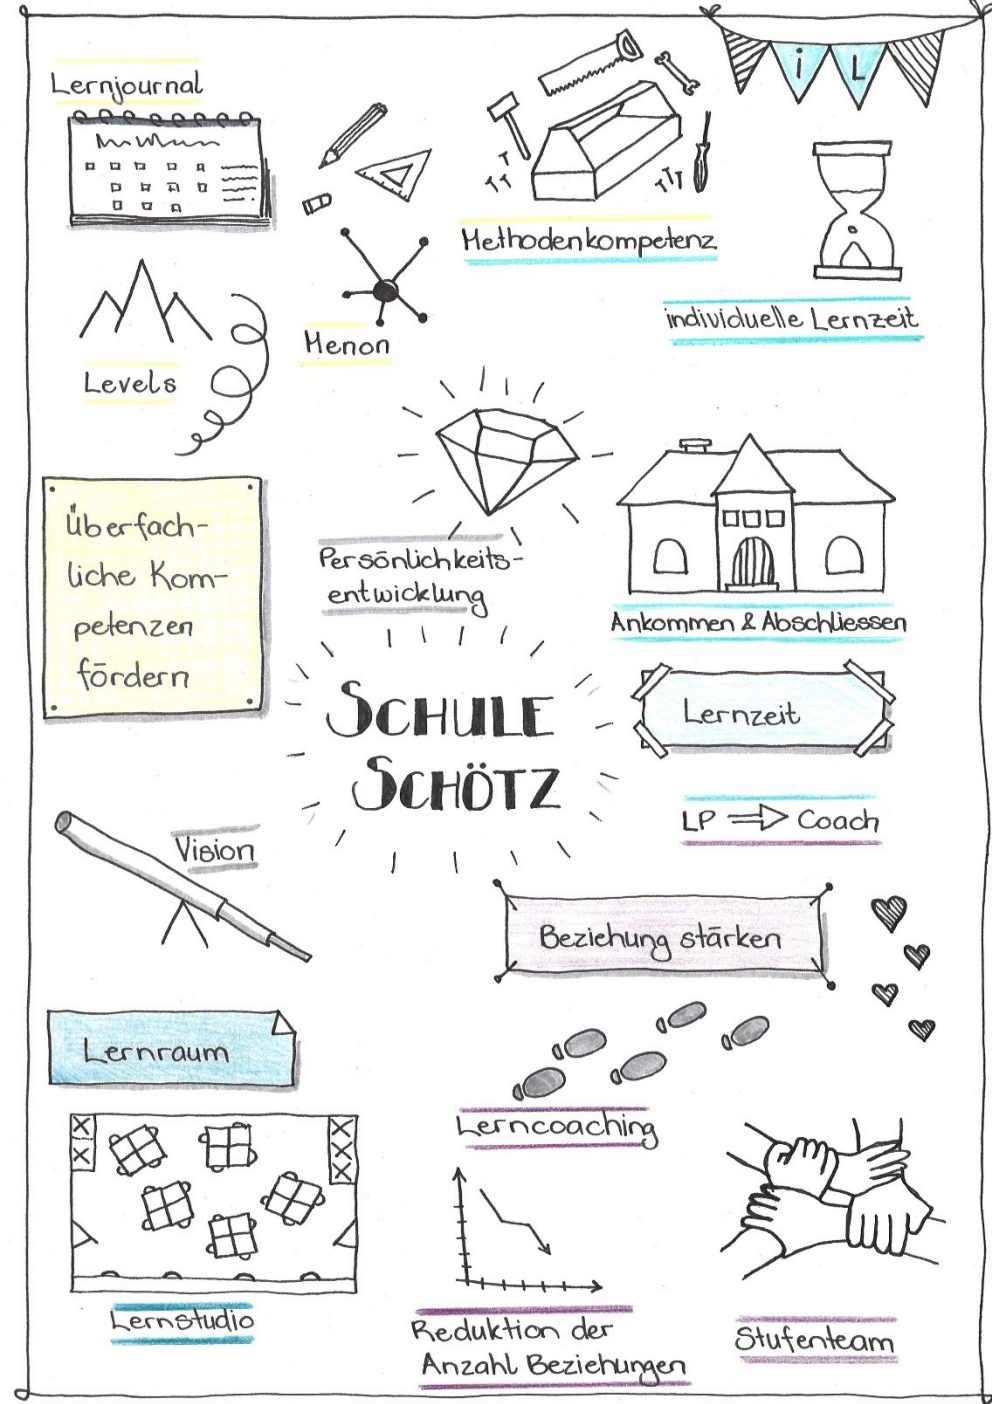 iL
Lernjournal
Methodenkompetenz
individuelle Lernzeit
Menon
Levels
Überfach-
liche Kom-
petenzen
fördern
Persönlichkeits-
entwicklung
Ankommen & Abschliessen
SCHULE
SCHÖTZ
Lernzeit
LP ⇒ Coach
Vision
Beziehung stärken
Lernraum
Lerncoaching
Lernstudio
Reduktion der
Anzahl Beziehungen
Stufenteam